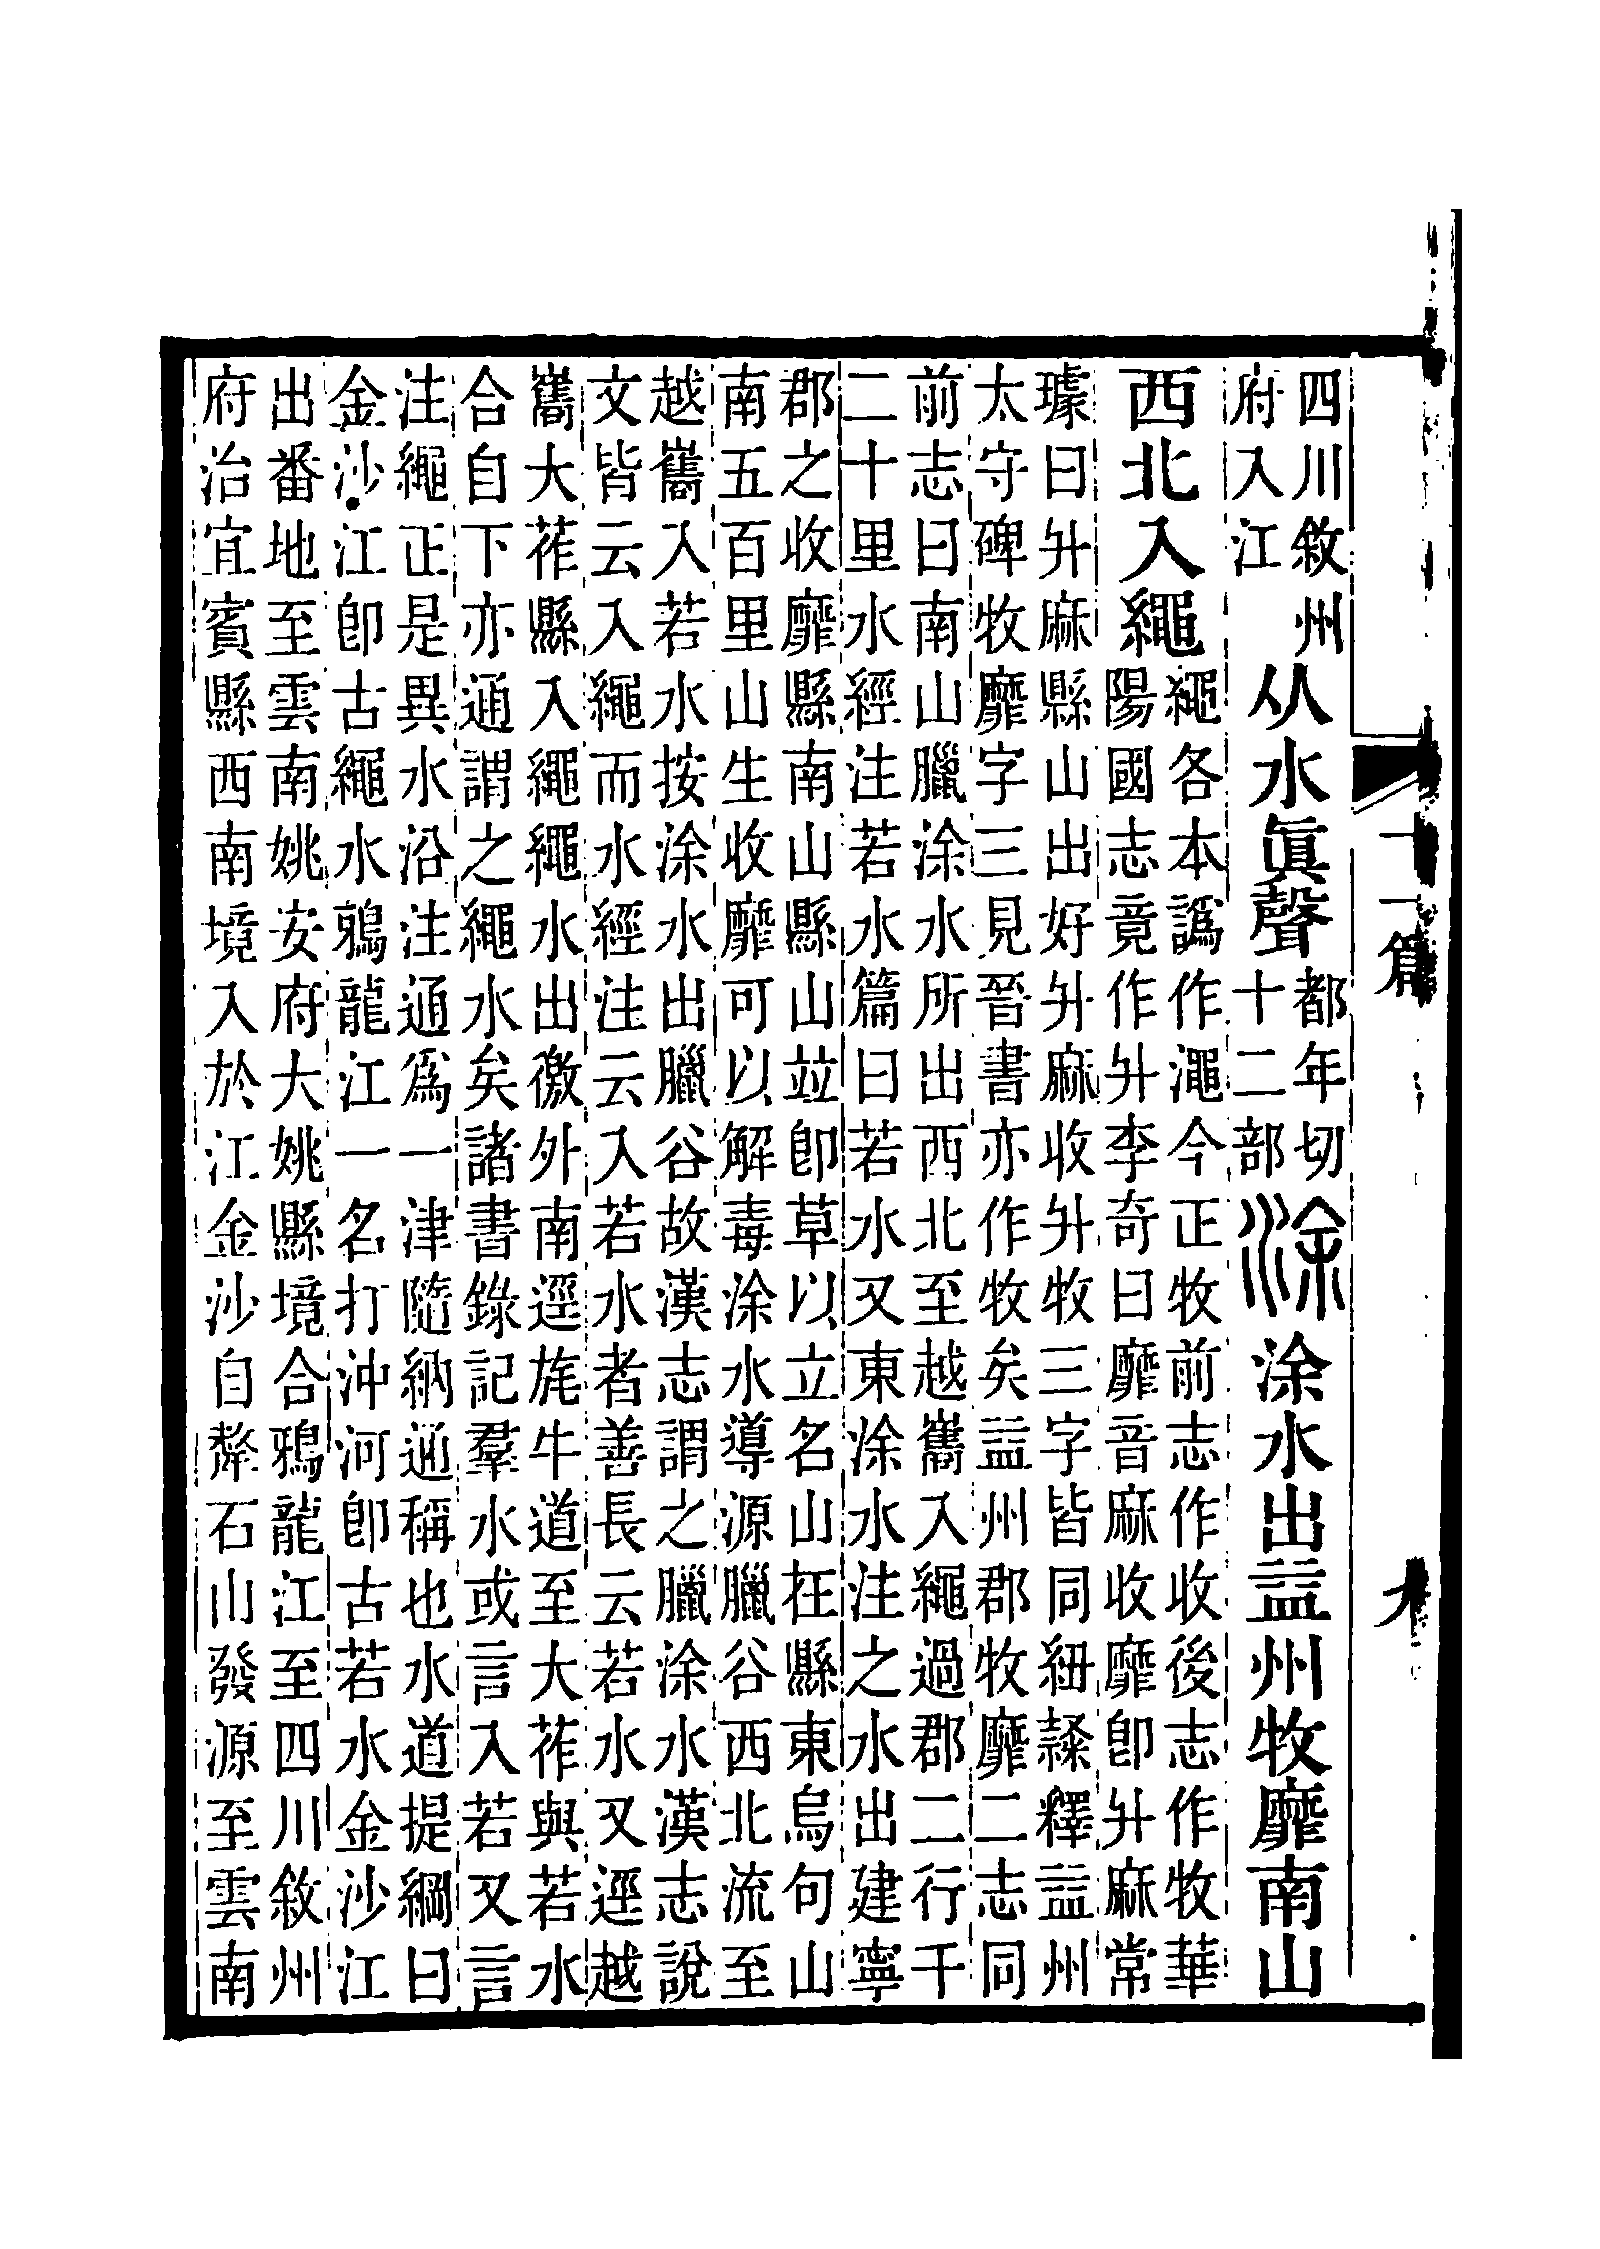 四川敘州
府入江
从水眞聲
都年切
十二部
涂
涂水出益州牧靡南山
西北入繩
繩各本譌作澠今正牧前志作收後志作牧華
陽國志竟作升李奇曰靡音麻收靡卽升麻常
璩曰升麻縣山出好升麻收升牧三字皆同紐隸釋益州
太守碑牧靡字三見晉書亦作牧矣益州郡牧靡二志同
前志曰南山臘涂水所出西北至越巂入繩過郡二行千
二十里水經注若水篇曰若水又東涂水注之水出建寧
郡之收靡縣南山縣山並卽草以立名山在縣東烏句山
南五百里山生收靡可以解毒涂水導源臘谷西北流至
越巂入若水按涂水出臘谷故漢志謂之臘涂水漢志說
文皆云入繩而水經注云入若水者善長云若水又逕越
巂大莋縣入繩繩水出徼外南逕旄牛道至大莋與若水
合自下亦通謂之繩水矣諸書錄記羣水或言入若又言
注繩正是異水沿注通爲一津隨納通稱也水道提綱曰
金沙江卽古繩水鵶龍江一名打沖河卽古若水金沙江
出番地至雲南姚安府大姚縣境合鴉龍江至四川敘州
府治宜賓縣西南境入於江金沙自犛石山發源至雲南
十一篇
九